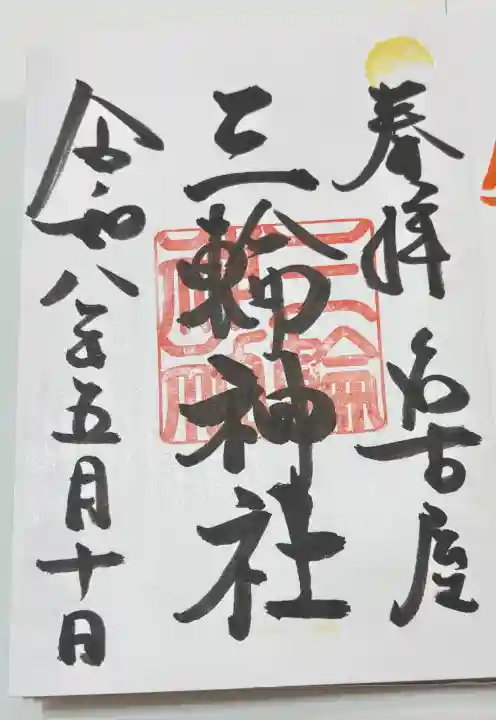 奉拝 名古屋
三輪神社
令和八年五月十日